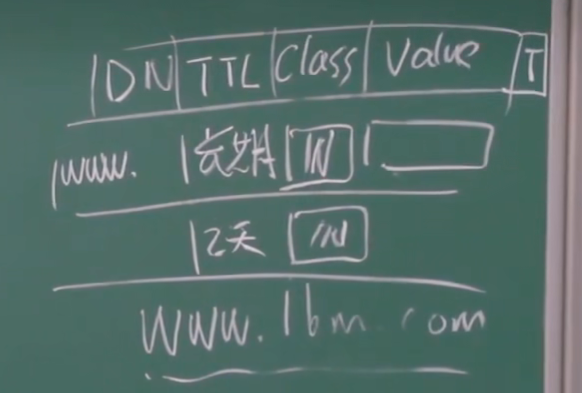 DN TTL Class Value T
www. 长期 IN
2天 IN
www.ibm.com